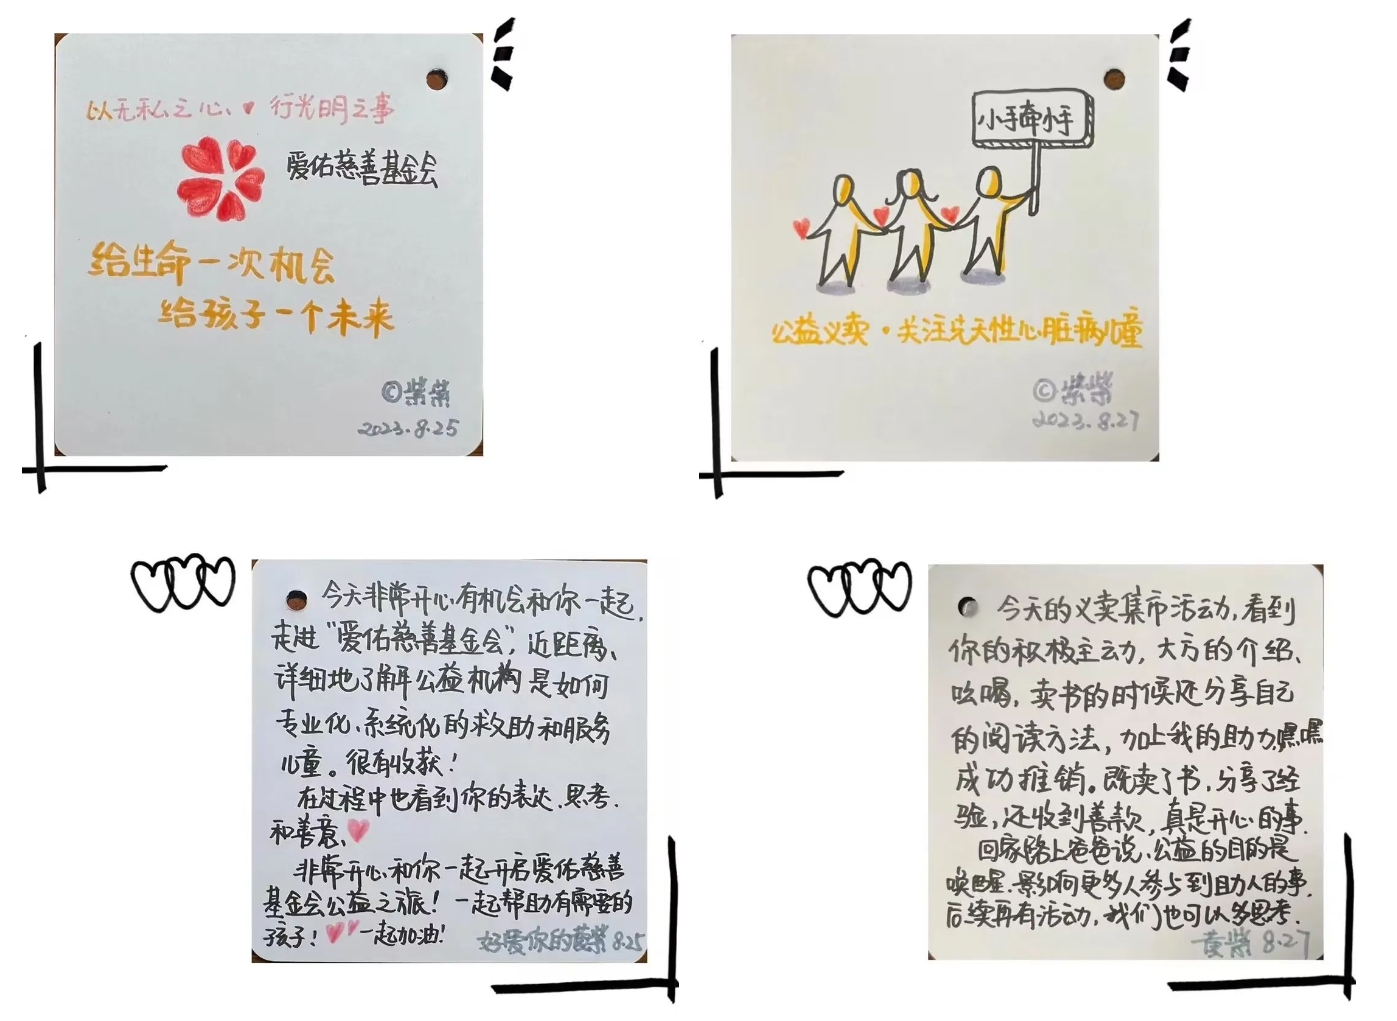 以无私之心、行光明之事
爱佑慈善基金会
给生命一次机会
给孩子一个未来
©紫紫
2023.8.25
小手牵小手
公益义卖·关注先天性心脏病儿童
©紫紫
2023.8.27
今天非常开心有机会和你一起,
走进"爱佑慈善基金会",近距离、
详细地了解公益机构是如何
专业化、系统化的救助和服务
儿童。很有收获!
在过程中也看到你的表达、思考、
和善意、
非常开心和你一起开启爱佑慈善
基金会公益之旅!一起帮助有需要的
孩子!一起加油!
好爱你的黄紫 8.25
今天的义卖集市活动,看到
你的积极主动,大方的介绍、
吆喝,卖书的时候还分享自己
的阅读方法,加上我的助力,嘿嘿
成功推销。既卖了书,分享了经
验,还收到善款,真是开心的事.
回家路上爸爸说,公益的目的是
唤醒、影响更多人参与到助人的事.
后续再有活动,我们也可以多思考.
黄紫 8.27